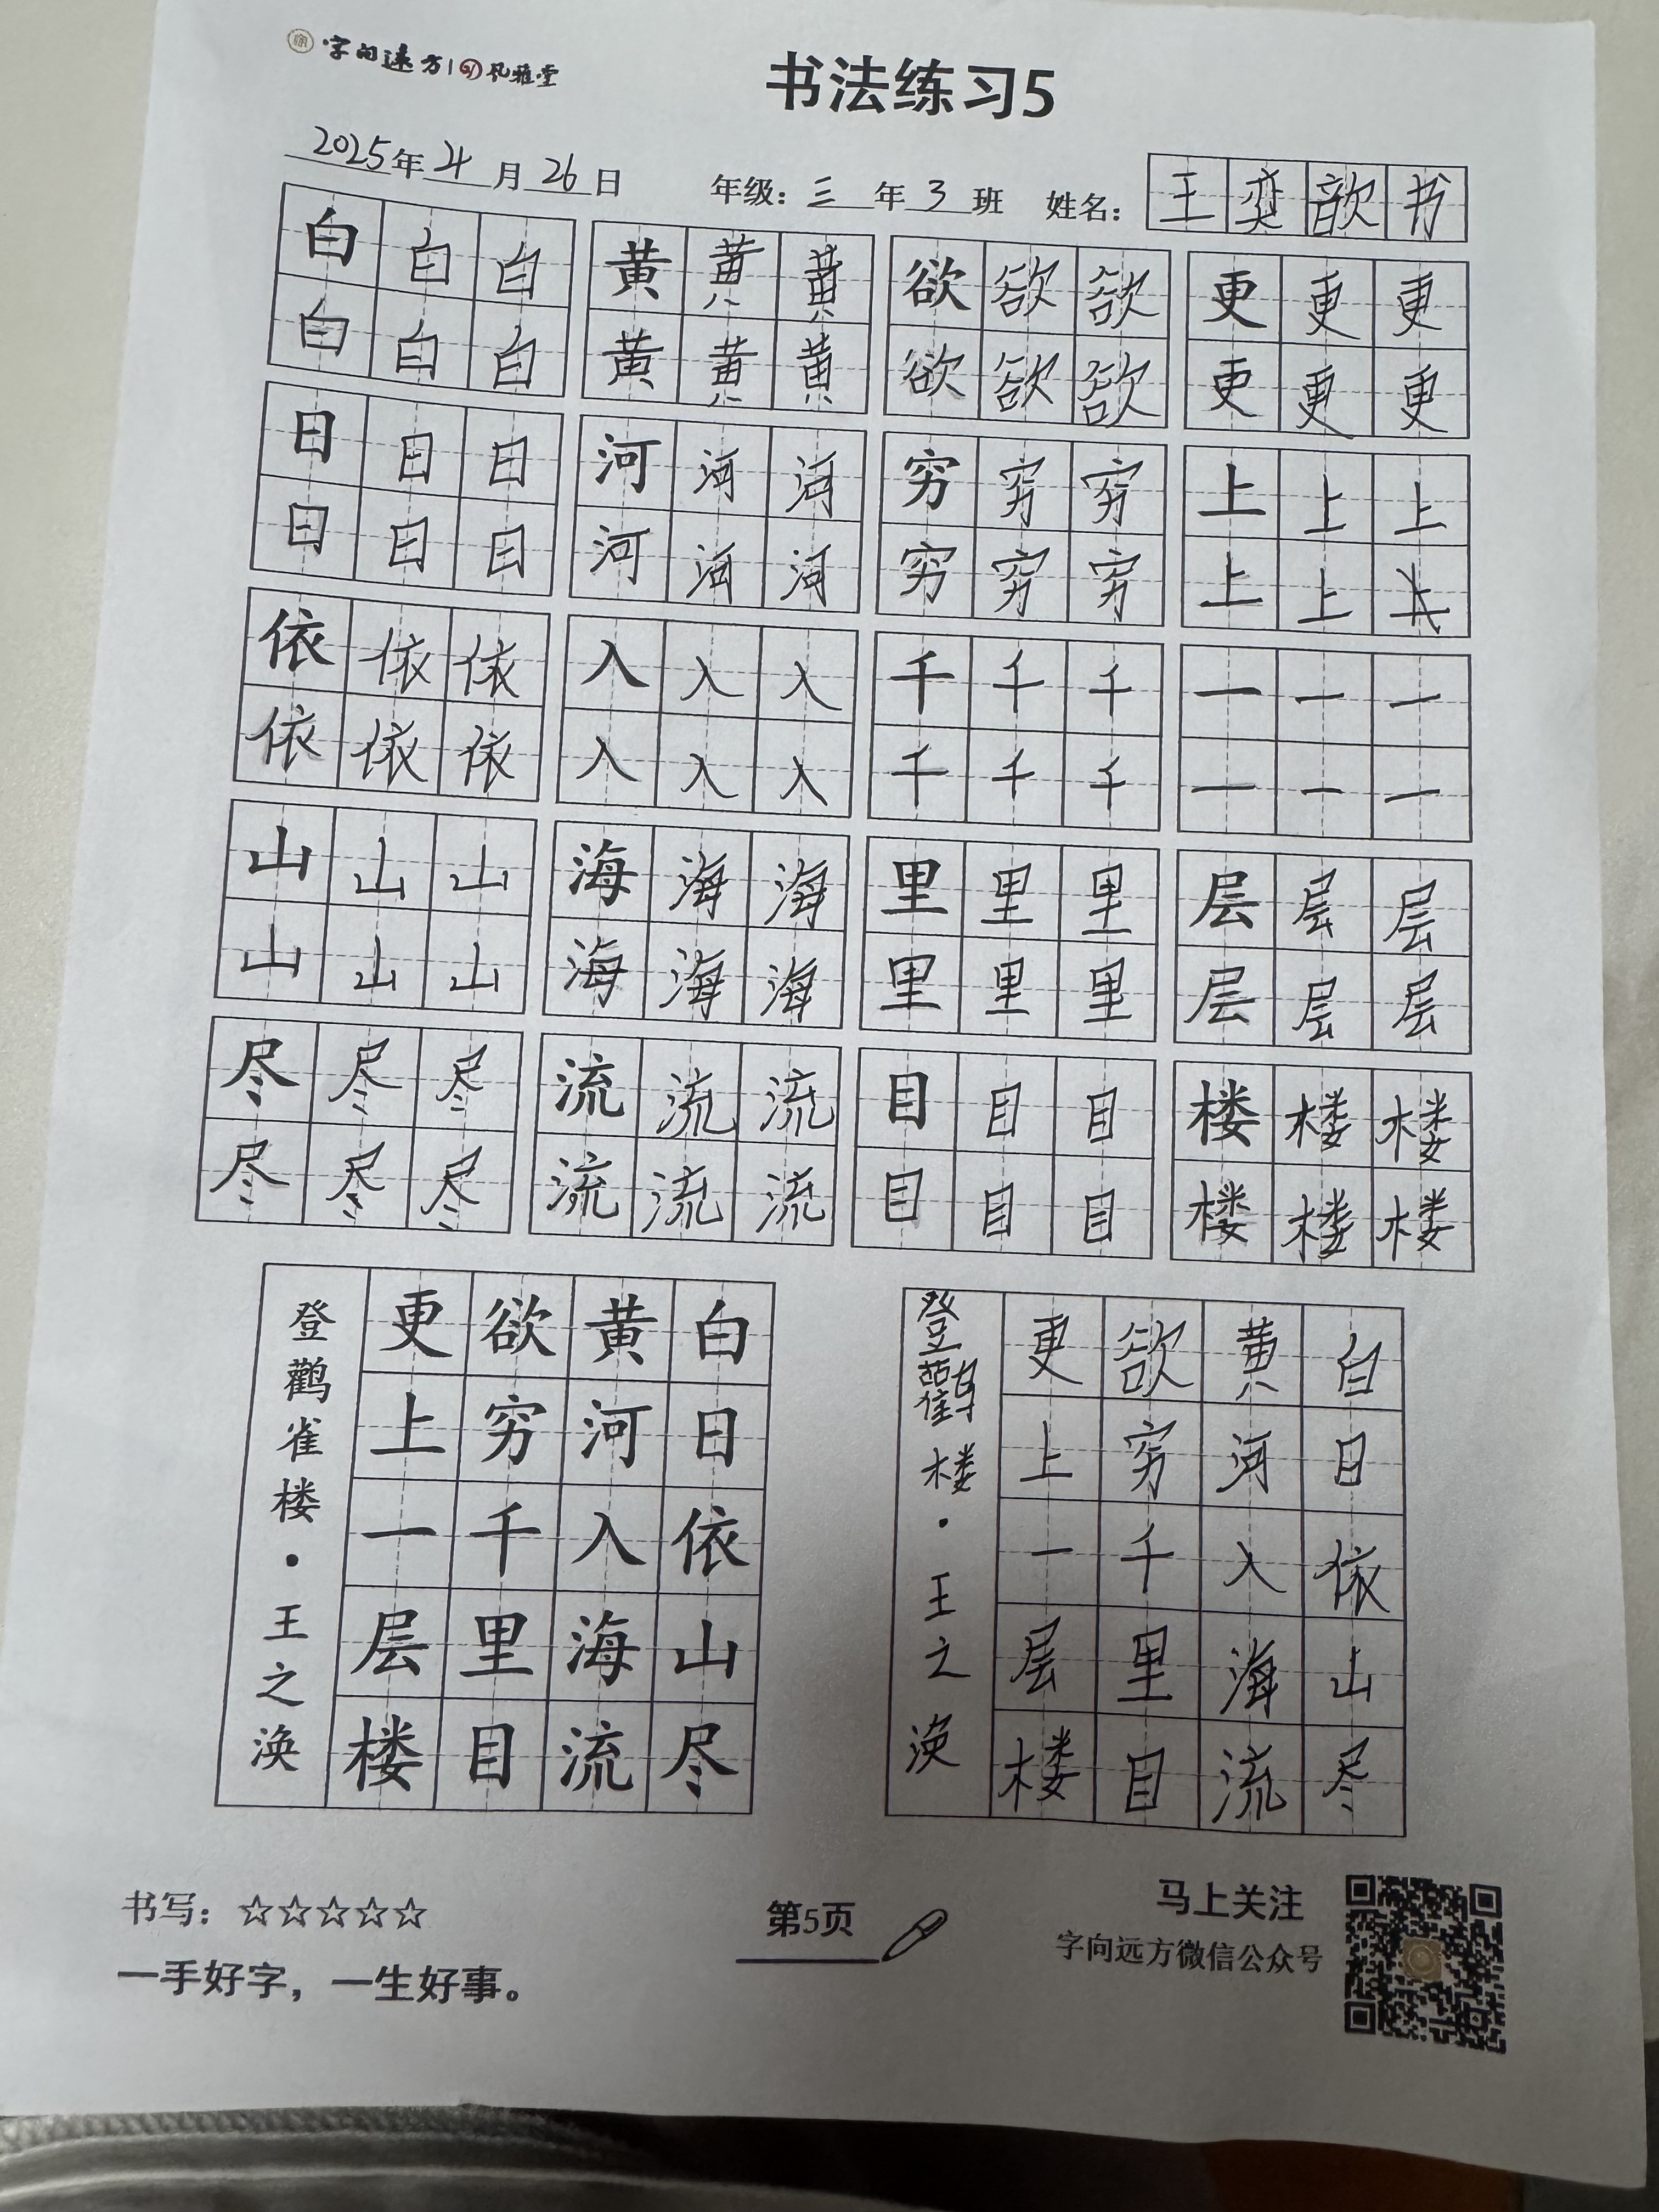 字向远方|风雅堂
书法练习5
2025年4月26日 年级:三年3班 姓名:王奕歆书
白白白 黄黄黄 欲欲欲 更更更
白白白 黄黄黄 欲欲欲 更更更
日日日 河河河 穷穷穷 上上上
日日日 河河河 穷穷穷 上上上
依依依 入入入 千千千 一一一
依依依 入入入 千千千 一一一
山山山 海海海 里里里 层层层
山山山 海海海 里里里 层层层
尽尽尽 流流流 目目目 楼楼楼
尽尽尽 流流流 目目目 楼楼楼
白日依山尽
黄河入海流
欲穷千里目
更上一层楼
登鹳雀楼·王之涣
白日依山尽
黄河入海流
欲穷千里目
更上一层楼
登鸛楼·王之涣
书写:☆☆☆☆☆
一手好字,一生好事。
第5页
马上关注
字向远方微信公众号